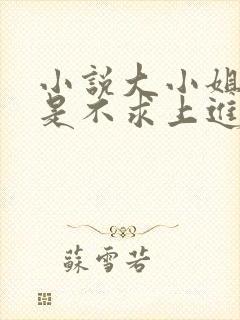 小說大小姐
是不求上進
蘇雪若